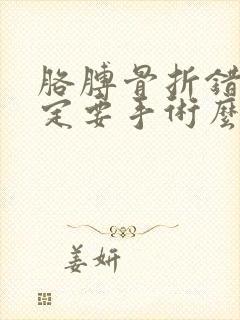 胳膊骨折錯
定要手術麼
姜妍